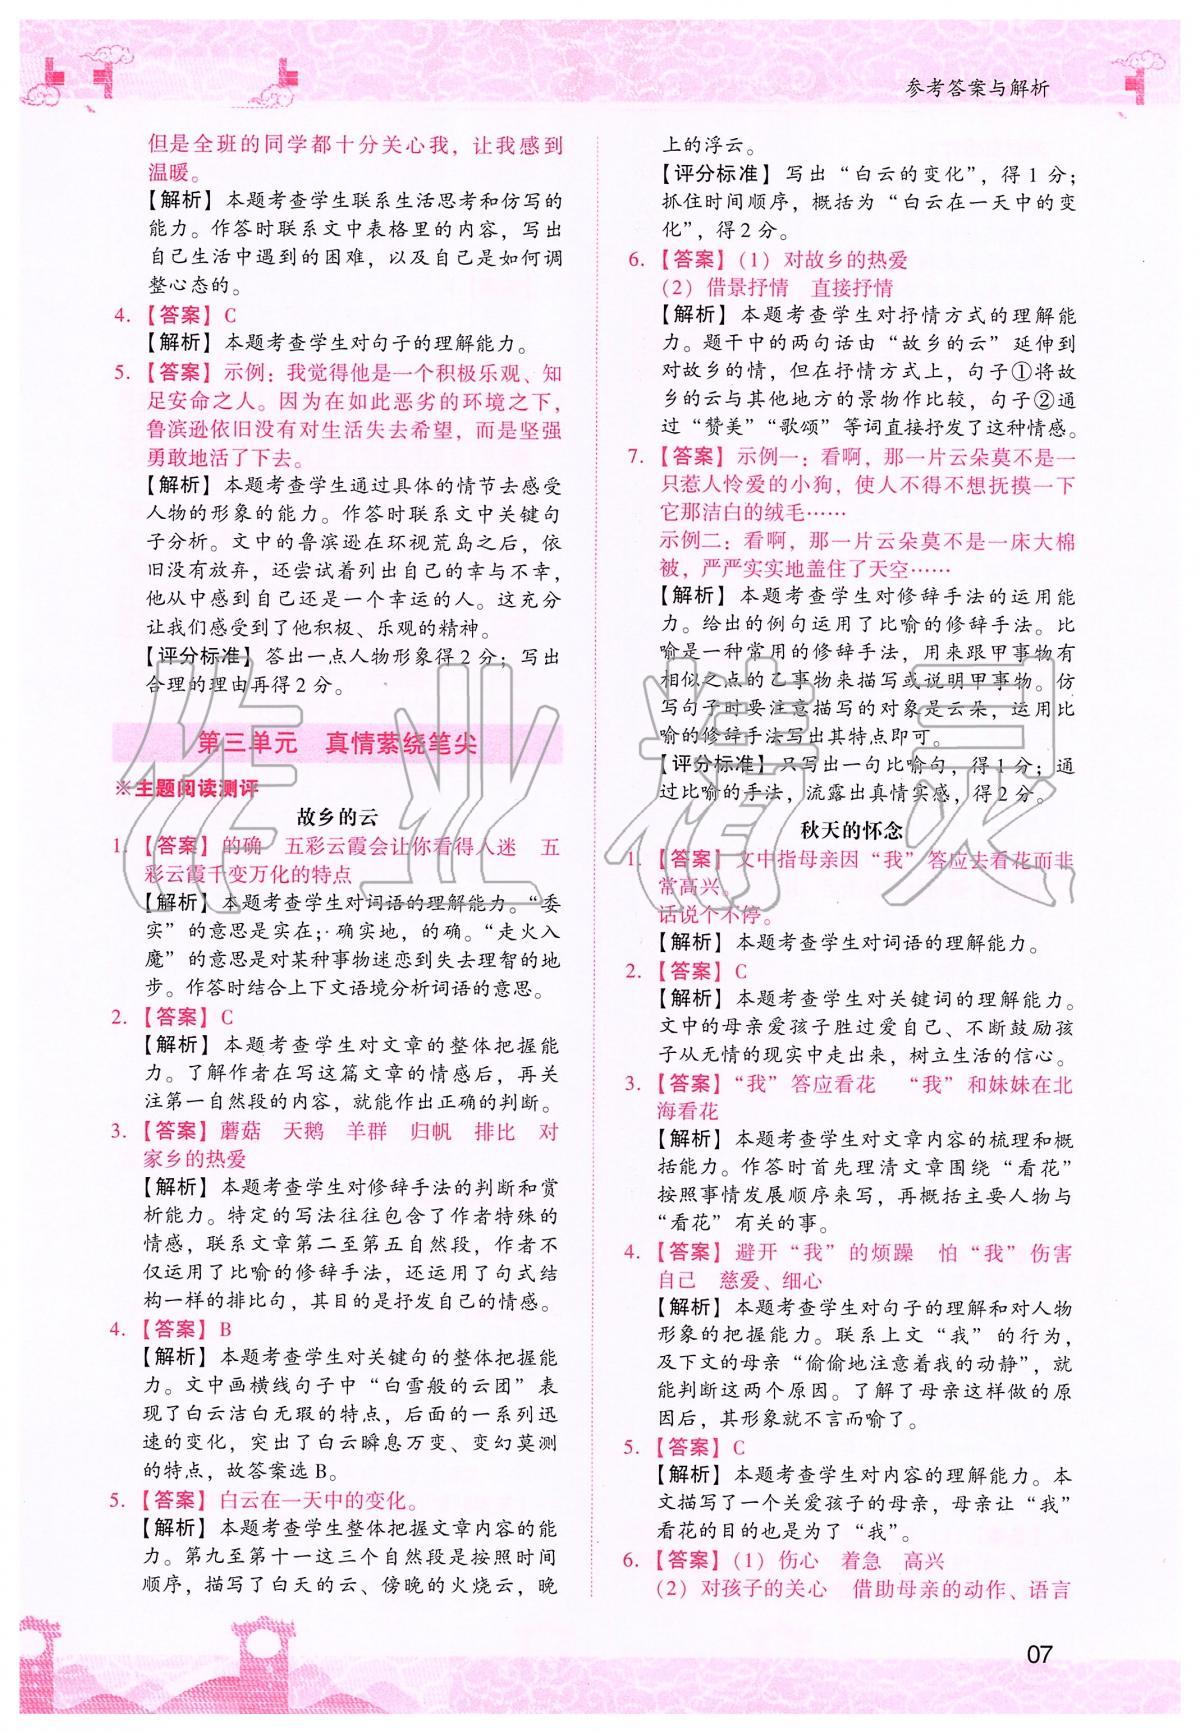 参考答案与解析
但是全班的同学都十分关心我，让我感到
温暖。
【解析】本题考查学生联系生活思考和仿写的
能力。作答时联系文中表格里的内容，写出
自己生活中遇到的困难，以及自己是如何调
整心态的。
4. 【答案】C
【解析】本题考查学生对句子的理解能力。
5. 【答案】示例：我觉得他是一个积极乐观、知
足安命之人。因为在如此恶劣的环境之下，
鲁滨逊依旧没有对生活失去希望，而是坚强
勇敢地活了下去。
【解析】本题考查学生通过具体的情节去感受
人物的形象的能力。作答时联系文中关键句
子分析。文中的鲁滨逊在环视荒岛之后，依
旧没有放弃，还尝试着列出自己的幸与不幸，
他从中感到自己还是一个幸运的人。这充分
让我们感受到了他积极、乐观的精神。
【评分标准】答出一点人物形象得2分；写出
合理的理由再得2分。
第三单元　真情萦绕笔尖
※主题阅读测评
故乡的云
1. 【答案】的确　五彩云霞会让你看得人迷　五
彩云霞千变万化的特点
【解析】本题考查学生对词语的理解能力。“委
实”的意思是实在；确实地，的确。“走火入
魔”的意思是对某种事物迷恋到失去理智的地
步。作答时结合上下文语境分析词语的意思。
2. 【答案】C
【解析】本题考查学生对文章的整体把握能
力。了解作者在写这篇文章的情感后，再关
注第一自然段的内容，就能作出正确的判断。
3. 【答案】蘑菇　天鹅　羊群　归帆　排比　对
家乡的热爱
【解析】本题考查学生对修辞手法的判断和赏
析能力。特定的写法往往包含了作者特殊的
情感，联系文章第二至第五自然段，作者不
仅运用了比喻的修辞手法，还运用了句式结
构一样的排比句，其目的是抒发自己的情感。
4. 【答案】B
【解析】本题考查学生对关键句的整体把握能
力。文中画横线句子中“白雪般的云团”表
现了白云洁白无瑕的特点，后面的一系列迅
速的变化，突出了白云瞬息万变、变幻莫测
的特点，故答案选B。
5. 【答案】白云在一天中的变化。
【解析】本题考查学生整体把握文章内容的能
力。第九至第十一这三个自然段是按照时间
顺序，描写了白天的云、傍晚的火烧云，晚
上的浮云。
【评分标准】写出“白云的变化”，得1分；
抓住时间顺序，概括为“白云在一天中的变
化”，得2分。
6. 【答案】（1）对故乡的热爱
（2）借景抒情　直接抒情
【解析】本题考查学生对抒情方式的理解能
力。题干中的两句话由“故乡的云”延伸到
对故乡的情，但在抒情方式上，句子①将故
乡的云与其他地方的景物作比较，句子②通
过“赞美”“歌颂”等词直接抒发了这种情感。
7. 【答案】示例一：看啊，那一片云朵莫不是一
只惹人怜爱的小狗，使人不得不想抚摸一下
它那洁白的绒毛……
示例二：看啊，那一片云朵莫不是一床大棉
被，严严实实地盖住了天空……
【解析】本题考查学生对修辞手法的运用能
力。给出的例句运用了比喻的修辞手法。比
喻是一种常用的修辞手法，用来跟甲事物有
相似之点的乙事物来描写或说明甲事物。仿
写句子时要注意描写的对象是云朵，运用比
喻的修辞手法写出其特点即可。
【评分标准】只写出一句比喻句，得1分；通
过比喻的手法，流露出真情实感，得2分。
秋天的怀念
1. 【答案】文中指母亲因“我”答应去看花而非
常高兴。
话说个不停。
【解析】本题考查学生对词语的理解能力。
2. 【答案】C
【解析】本题考查学生对关键词的理解能力。
文中的母亲爱孩子胜过爱自己、不断鼓励孩
子从无情的现实中走出来，树立生活的信心。
3. 【答案】“我”答应看花　“我”和妹妹在北
海看花
【解析】本题考查学生对文章内容的梳理和概
括能力。作答时首先理清文章围绕“看花”
按照事情发展顺序来写，再概括主要人物与
“看花”有关的事。
4. 【答案】避开“我”的烦躁　怕“我”伤害
自己　慈爱、细心
【解析】本题考查学生对句子的理解和对人物
形象的把握能力。联系上文“我”的行为，
及下文的母亲“偷偷地注意着我的动静”，就
能判断这两个原因。了解了母亲这样做的原
因后，其形象就不言而喻了。
5. 【答案】C
【解析】本题考查学生对内容的理解能力。本
文描写了一个关爱孩子的母亲，母亲让“我”
看花的目的也是为了“我”。
6. 【答案】（1）伤心　着急　高兴
（2）对孩子的关心　借助母亲的动作、语言
07
作业精灵